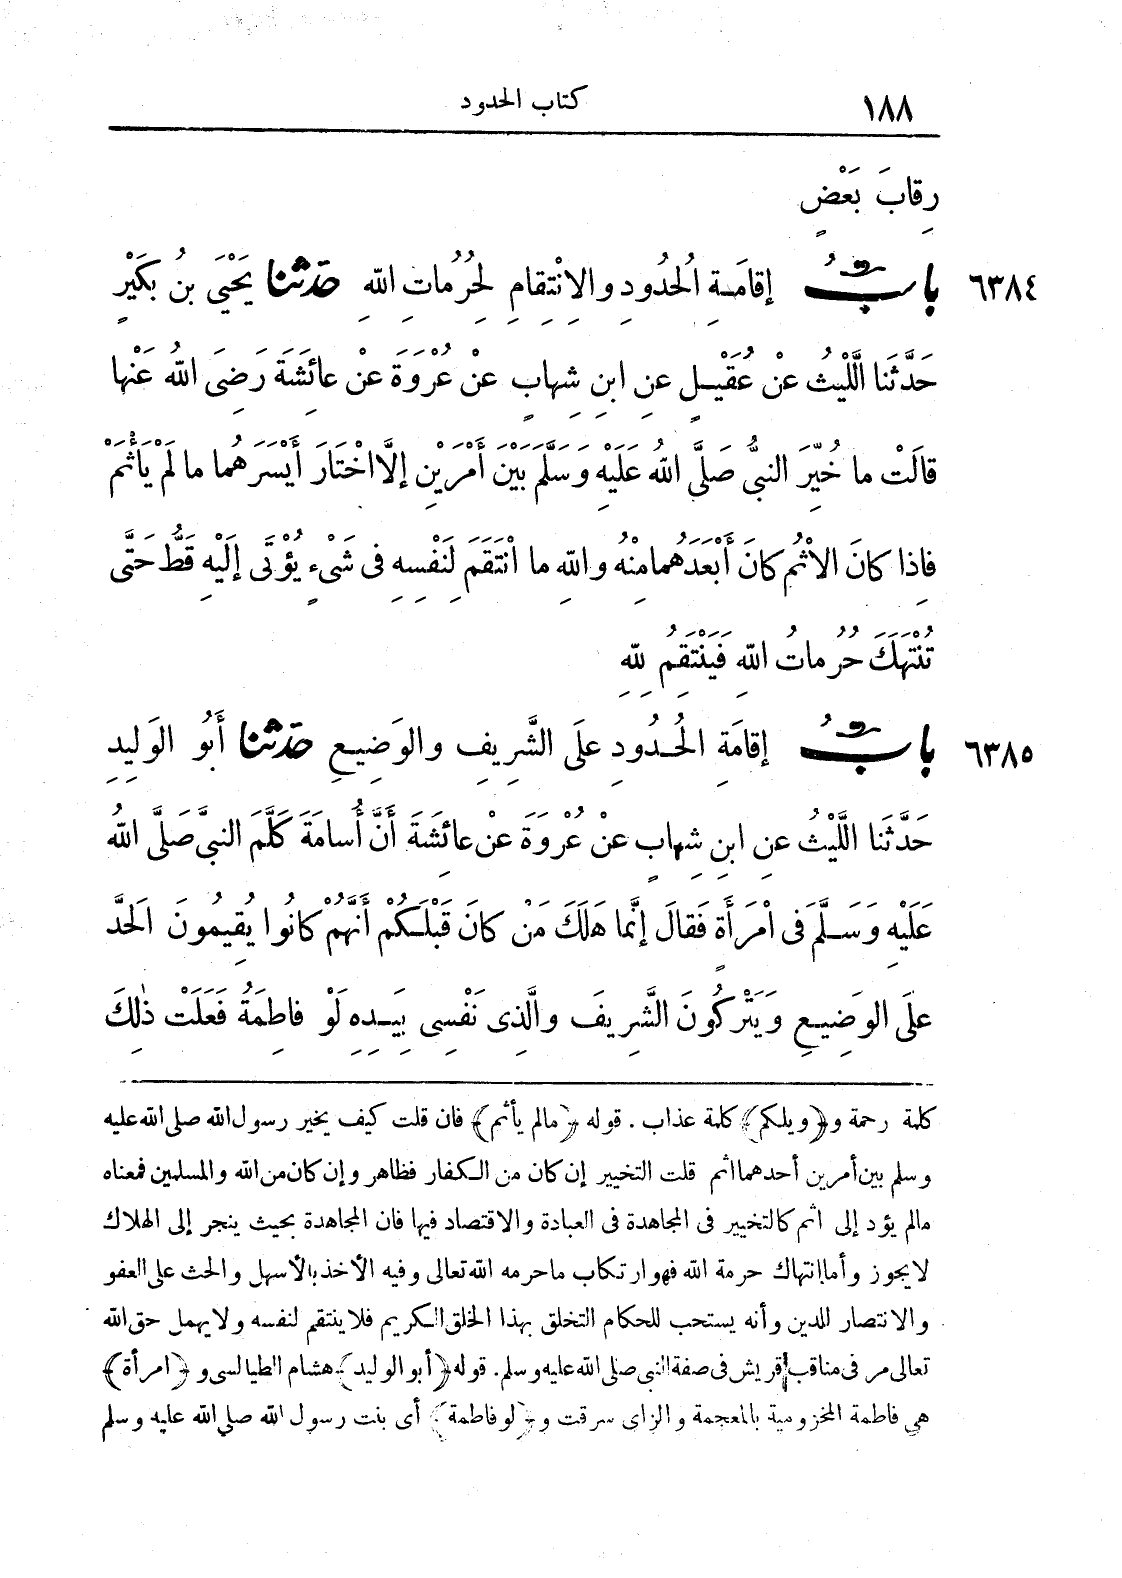 ١٨٨ كتاب الحدود
رِقابَ بَعْضٍ
٦٣٨٤ بابُ إقامَةِ الُحدُودِ والاِنْتِقامِ لِحُرُماتِ اللّهِ حَدَثَنا يَحْيَى بنُ بُكَيْرٍ
حَدَّثَنا الَّليْثُ عنْ عُقَيْلٍ عنِ ابنِ شِهابٍ عنْ عُرْوَةَ عنْ عائِشَةَ رَضِىَ اللّهُ عَنْها
قالَتْ ما خُيِّرَ النبيُّ صَلَّى اللّهُ عَلَيْهِ وَسَلَّمَ بَيْنَ أَمْرَيْنِ إلَّا اخْتَارَ أَيْسَرَهُما ما لمَ ْ يَأْثَمْ
فاِذا كانَ الاْثمُ كانَ أَبْعَدَهُما مِنْهُ واللّهِ ما انْتَقَمَ لَنَفْسِهِ فى شَىْءٍ يُؤْتَى إلَيْهِ قَطُّ حَتَّى
تُنْتَهَكَ حُرُماتُ اللّهِ فَيَنْتَقِمُ لِلّهِ
٦٣٨٥ بابُ إقامَةِ الحُدُودِ علَى الشَّرِيفِ والوَضِيعِ حَدَثَنا أَبُو الوَلِيدِ
حَدَّثَنا اللَّيْثُ عنِ ابنِ شِهابٍ عنْ عُرْوَةَ عنْ عائشَةَ أَنَّ أُسامَةَ كَلَّمَ النبيَّ صَلَّى اللّهُ
عَلَيْهِ وَسَلَّمَ فى امْرَأَةٍ فَقالَ إنَّما هَلَكَ مَنْ كانَ قَبْلَكُمْ أَنَّهُمْ كانُوا يُقِيمُونَ الَحدَّ
علَى الوَضِيعِ وَيَتْرُكُونَ الشَّرِيفَ والَّذِى نَفْسِى بِيَدِهِ لَوْ فاطِمَةُ فَعَلَتْ ذٰلِكَ
كلمة رحمة و ﴿ويلكم﴾ كلمة عذاب . قوله ﴿مالم يأثم﴾ فان قلت كيف يخير رسول الله صلى الله عليه
وسلم بين أمرين أحدهما اثم قلت التخيير إن كان من الكفار فظاهر وإن كان من الله والمسلمين فمعناه
مالم يؤد إلى اثم كالتخيير فى المجاهدة فى العبادة والاقتصاد فيها فان المجاهدة بحيث ينجر إلى الهلاك
لايجوز وأما انتهاك حرمة الله فهو ارتكاب ماحرمه الله تعالى وفيه الأخذ بالأسهل والحث على العفو
والانتصار للدين وأنه يستحب للحكام التخلق بهذا الخلق الكريم فلا ينتقم لنفسه ولايهمل حق الله
تعالى مر فى مناقب قريش فى صفة النبى صلى الله عليه وسلم. قوله ﴿أبو الوليد﴾ هشام الطيالسى و ﴿امرأة﴾
هى فاطمة المخزومية بالمعجمة والزاى سرقت و ﴿لو فاطمة﴾ أى بنت رسول الله صلى الله عليه وسلم